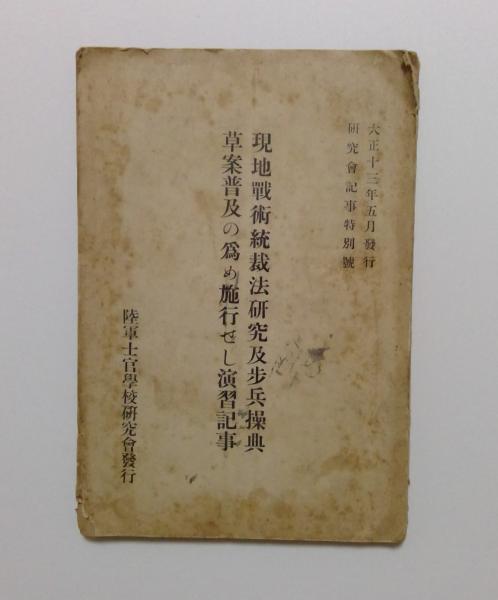 大正十三年五月發行
研究會記事特別號
現地戰術統裁法硏究及步兵操典
草案普及の爲め施行せし演習記事
陸軍士官學校硏究會發行